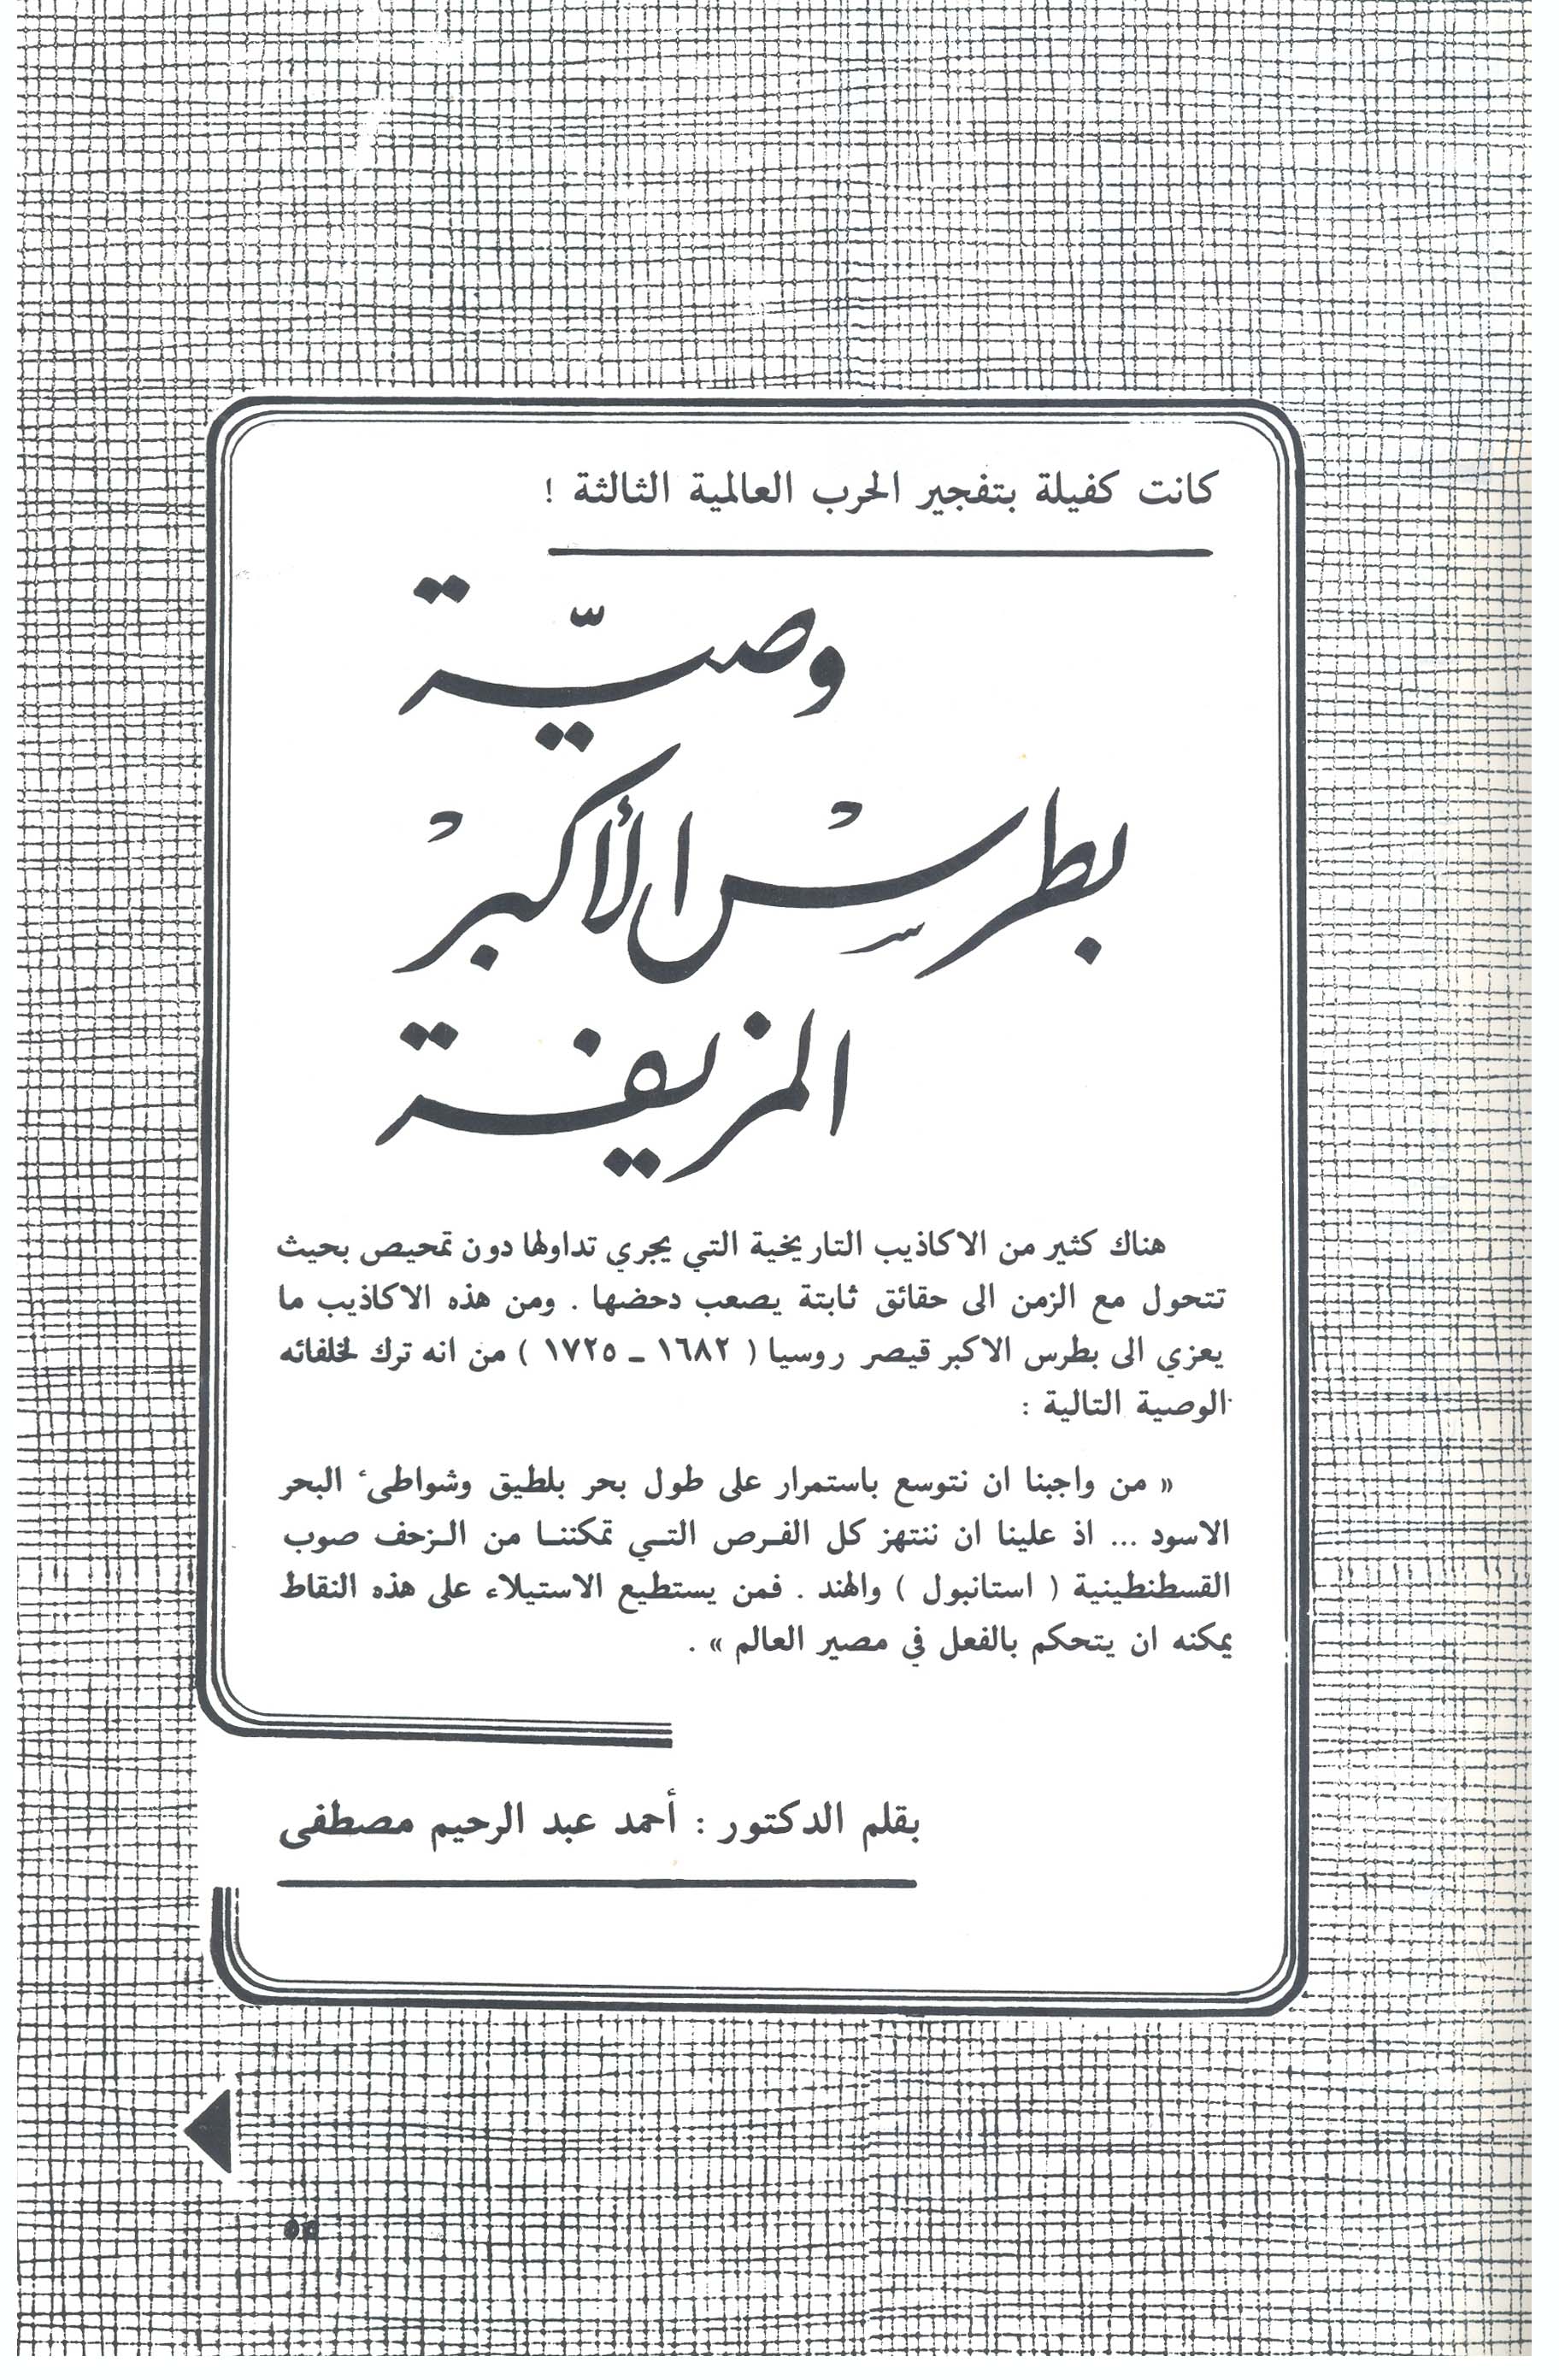 كانت كفيلة بتفجير الحرب العالمية الثالثة !
وصيّة
بطرس الأكبر
المزيفة
هناك كثير من الاكاذيب التاريخية التي يجري تداولها دون تمحيص بحيث
تتحول مع الزمن الى حقائق ثابتة يصعب دحضها . ومن هذه الاكاذيب ما
يعزي الى بطرس الاكبر قيصر روسيا ( ١٦٨٢ ــ ١٧٢٥ ) من انه ترك لخلفائه
الوصية التالية :
« من واجبنا ان نتوسع باستمرار على طول بحر بلطيق وشواطىء البحر
الاسود ... اذ علينا ان ننتهز كل الفـرص التـي تمكننـا من الـزحف صوب
القسطنطينية ( استانبول ) والهند . فمن يستطيع الاستيلاء على هذه النقاط
يمكنه ان يتحكم بالفعل في مصير العالم » .
بقلم الدكتور : أحمد عبد الرحيم مصطفى